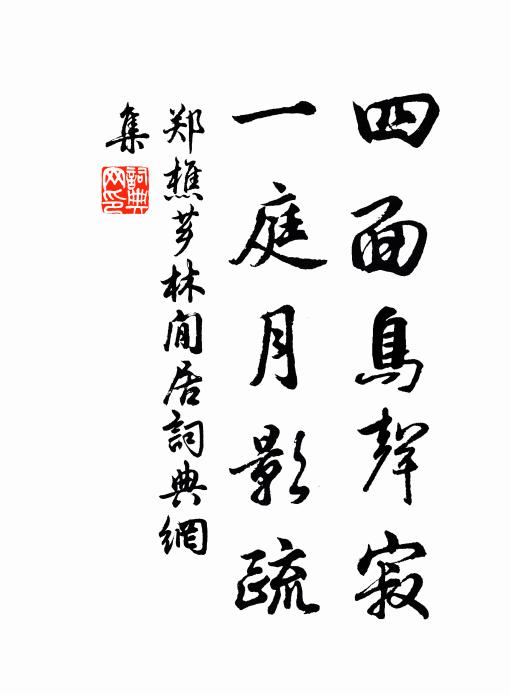 四面鳥聲寂
一庭月影疏
郑樵芗林閒居詞典網
集
詞典网印